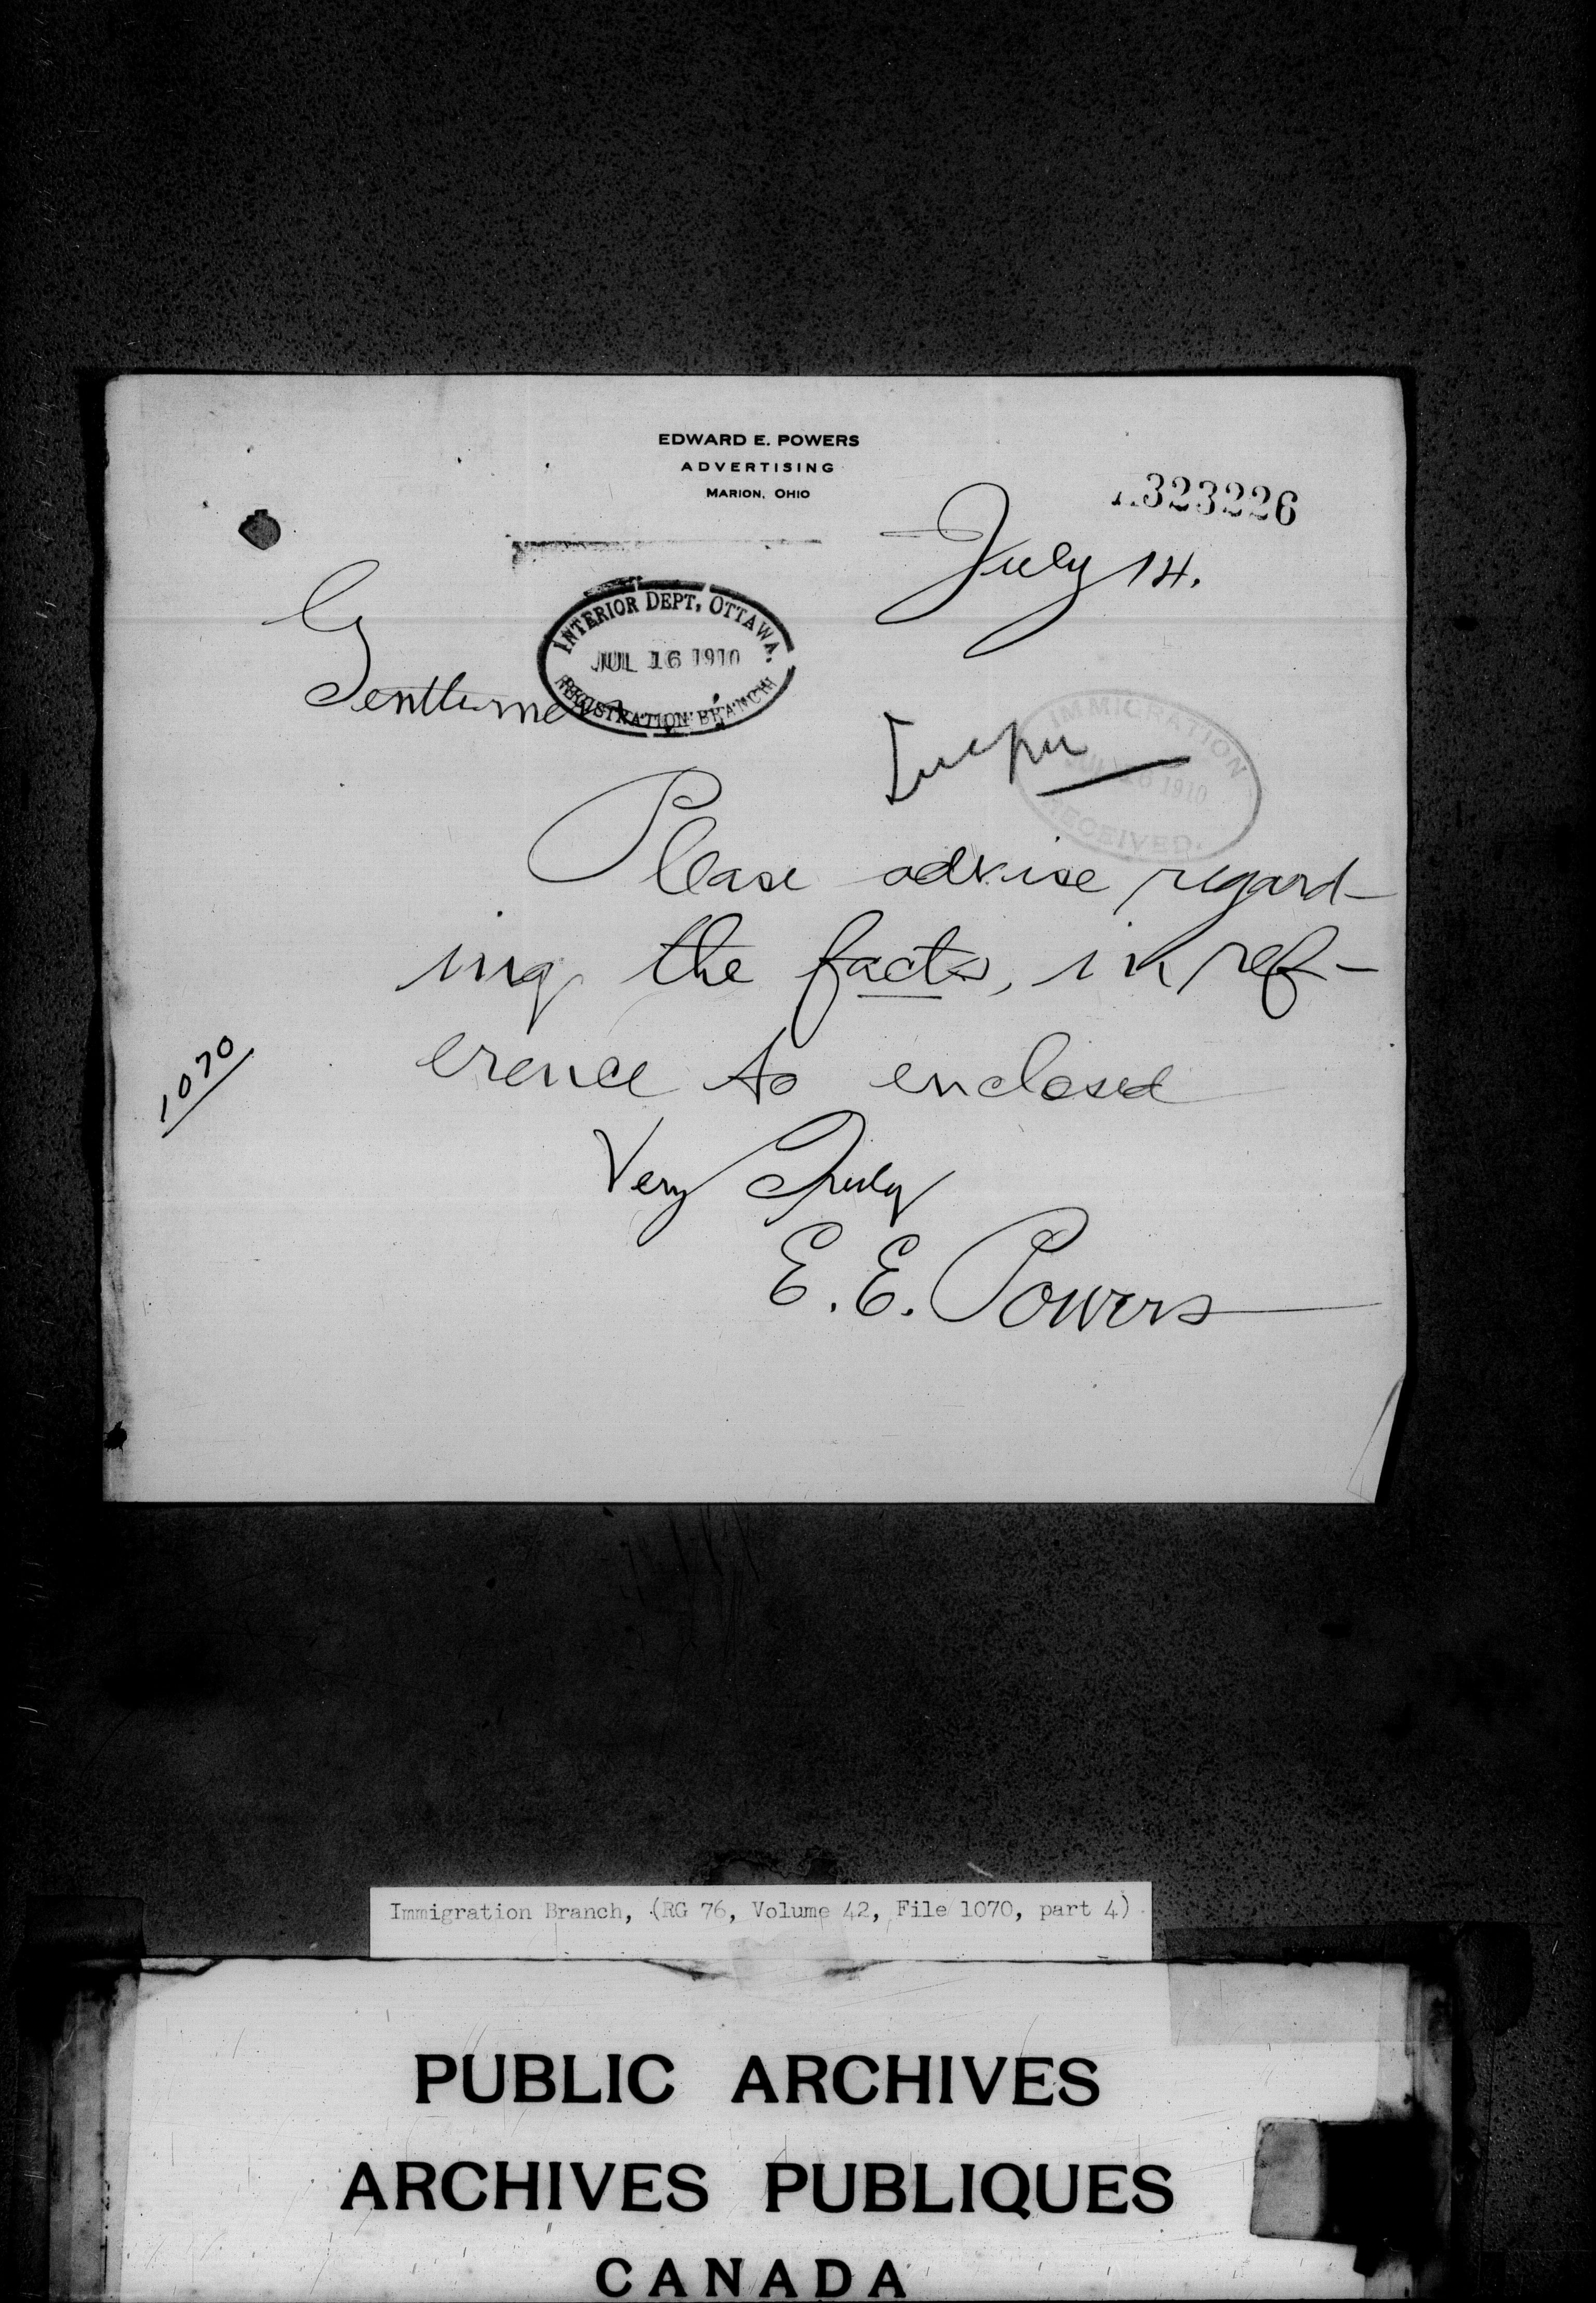 EDWARD E. POWERS
ADVERTISING
MARION, OHIO
323226
July 14.
INTERIOR DEPT, OTTAWA.
JUL 16 1910
REGISTRATION BRANCH
Gentlemen
IMMIGRATION
JUL 16 1910
RECEIVED.
Please advise regard-
ing the facts, in ref-
erence to enclosed
1070
Very Truly
E. E. Powers
Immigration Branch, (RG 76, Volume 42, File 1070, part 4)
PUBLIC ARCHIVES
ARCHIVES PUBLIQUES
CANADA